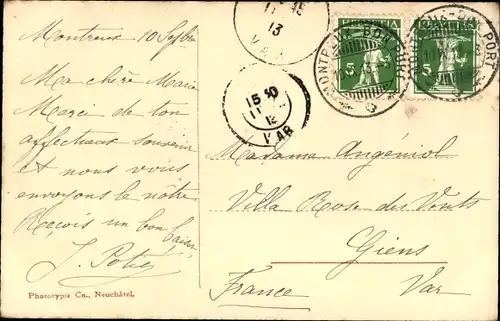 Montreux 10 Septbre
Ma chère Marie
Merci de ton
affectueux souvenir
et nous vous
envoyons le nôtre
Reçois un bon baiser
J.
Phototypie Co., Neuchâtel.
11 45
13
VAR
15 50
11
12
VAR
MONTREUX - BON PORT
5
HELVETIA
5
Madame Angéniol
Villa Rose des Vents
Giens
Var
France